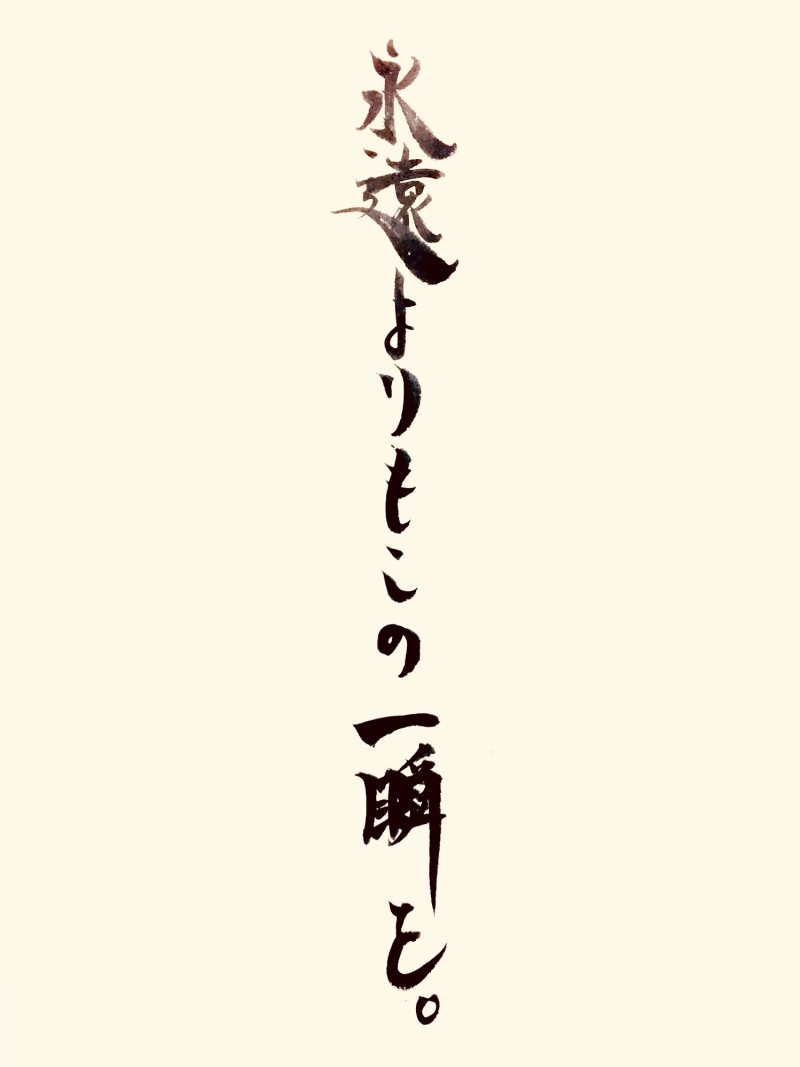 永遠よりもこの一瞬を。